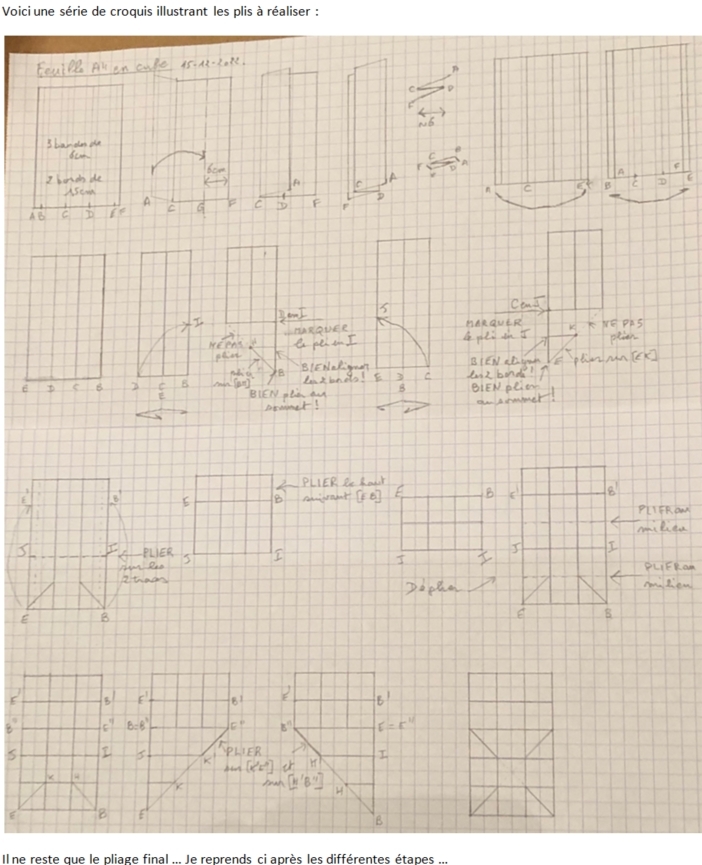 Voici une série de croquis illustrant les plis à réaliser :
Feuille A4 en cube 15-12-2022.
3 bandes de
6cm
2 bords de
1,5cm
A B C D E F
6cm
A C G F
C D F
A
C A
F D
A
C D
F
≈6
A C E
B A C D F E
E D C B
I
D C B
E
D en I
MARQUER
le pli en I
NE PAS
plier
H
B
BIEN aligner
les 2 bords !
BIEN plier au
sommet !
J
E D C
B
C en J
MARQUER
le pli en J
K
NE PAS
plier
BIEN aligner
les 2 bords !
E plier sur [EK]
BIEN plier
au sommet !
E' B'
J I
PLIER
sur les
2 traces
E B
PLIER le haut
suivant [EB]
E B
J I
E B
Déplier
E' B'
PLIER au
milieu
J I
PLIER au
milieu
E B
E' B'
B" E"
J I
K H
E B
E' B'
B=B" E"
J K'
PLIER
sur [K'E"] et
sur [H'B"]
K
E
E' B'
B" E=E"
H' I
H
B
Il ne reste que le pliage final ... Je reprends ci après les différentes étapes ...